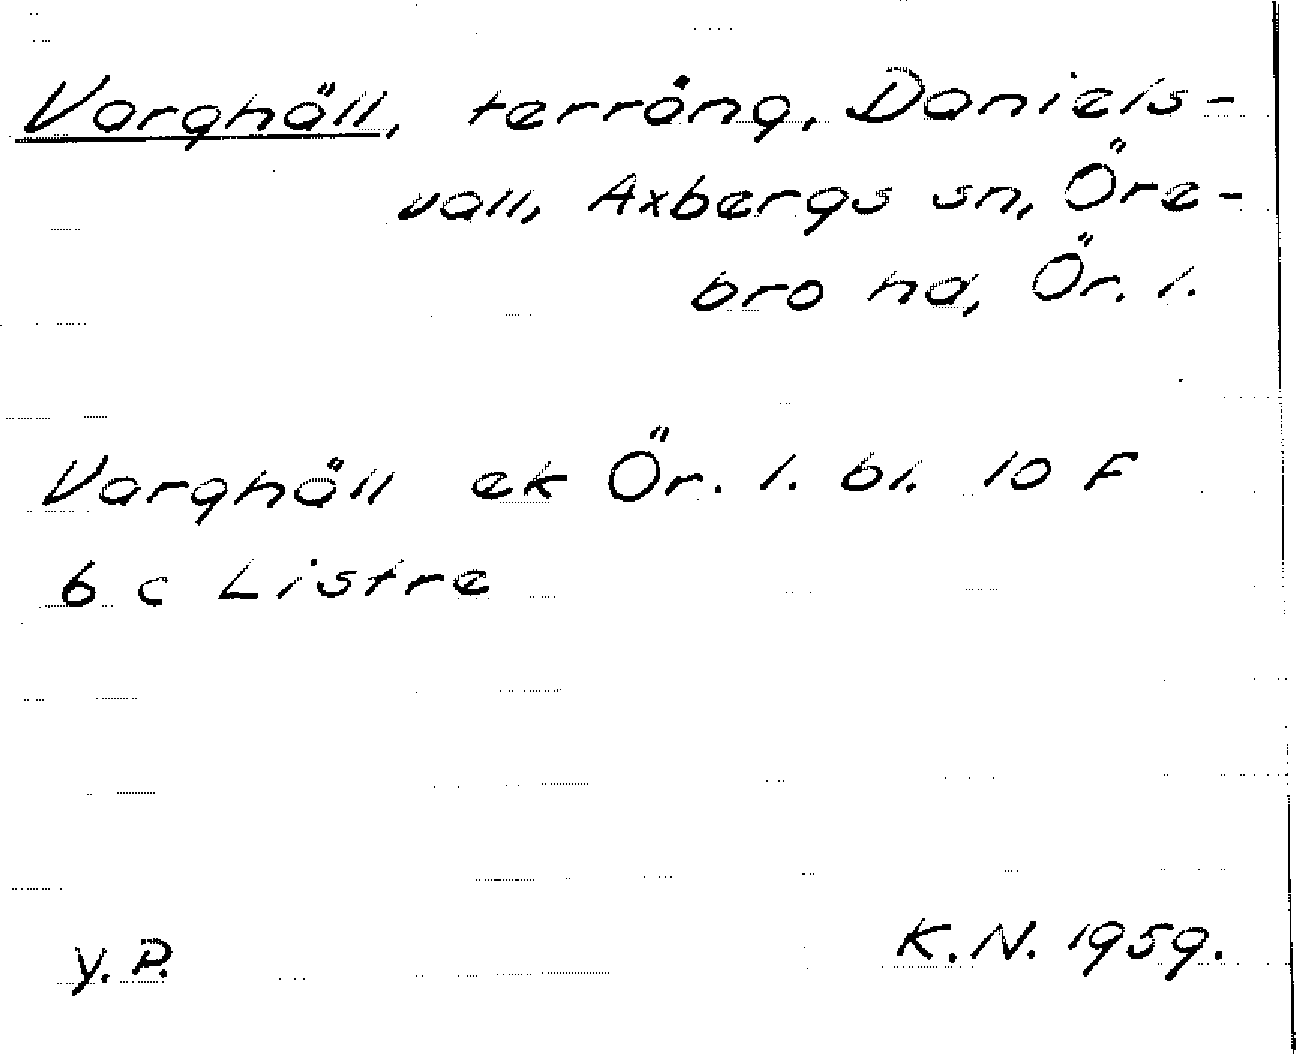 Varghäll, terräng, Daniels-
vall, Axbergs sn, Öre-
bro hd, Ör. l.
Varghäll ek Ör. l. bl. 10 F
6 c Listre
Y. P.
K. N. 1959.